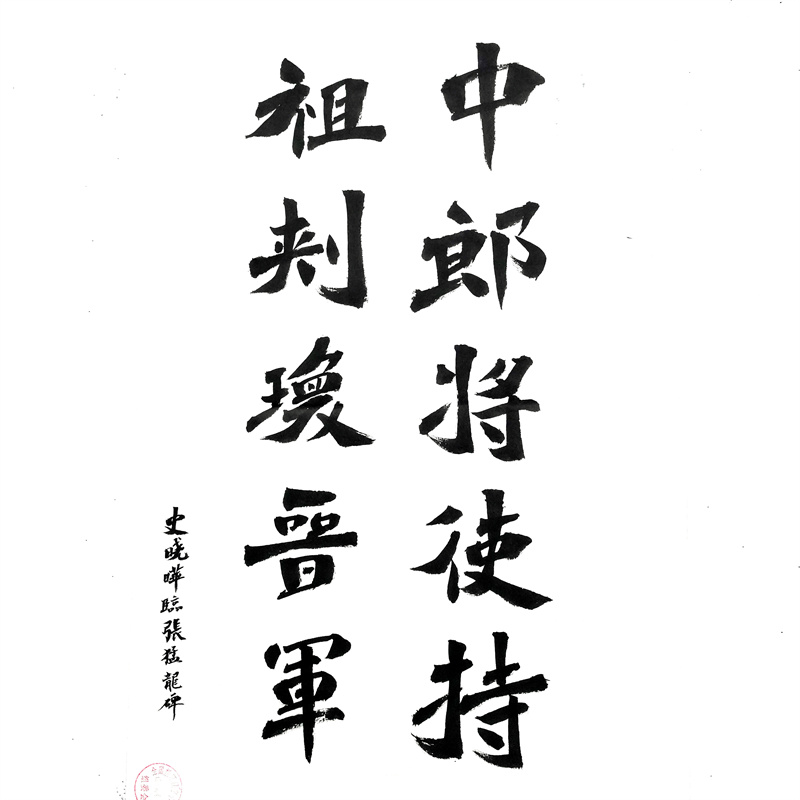 中郎将使持
祖刾瓊晉軍
史晓曄臨張猛龍碑